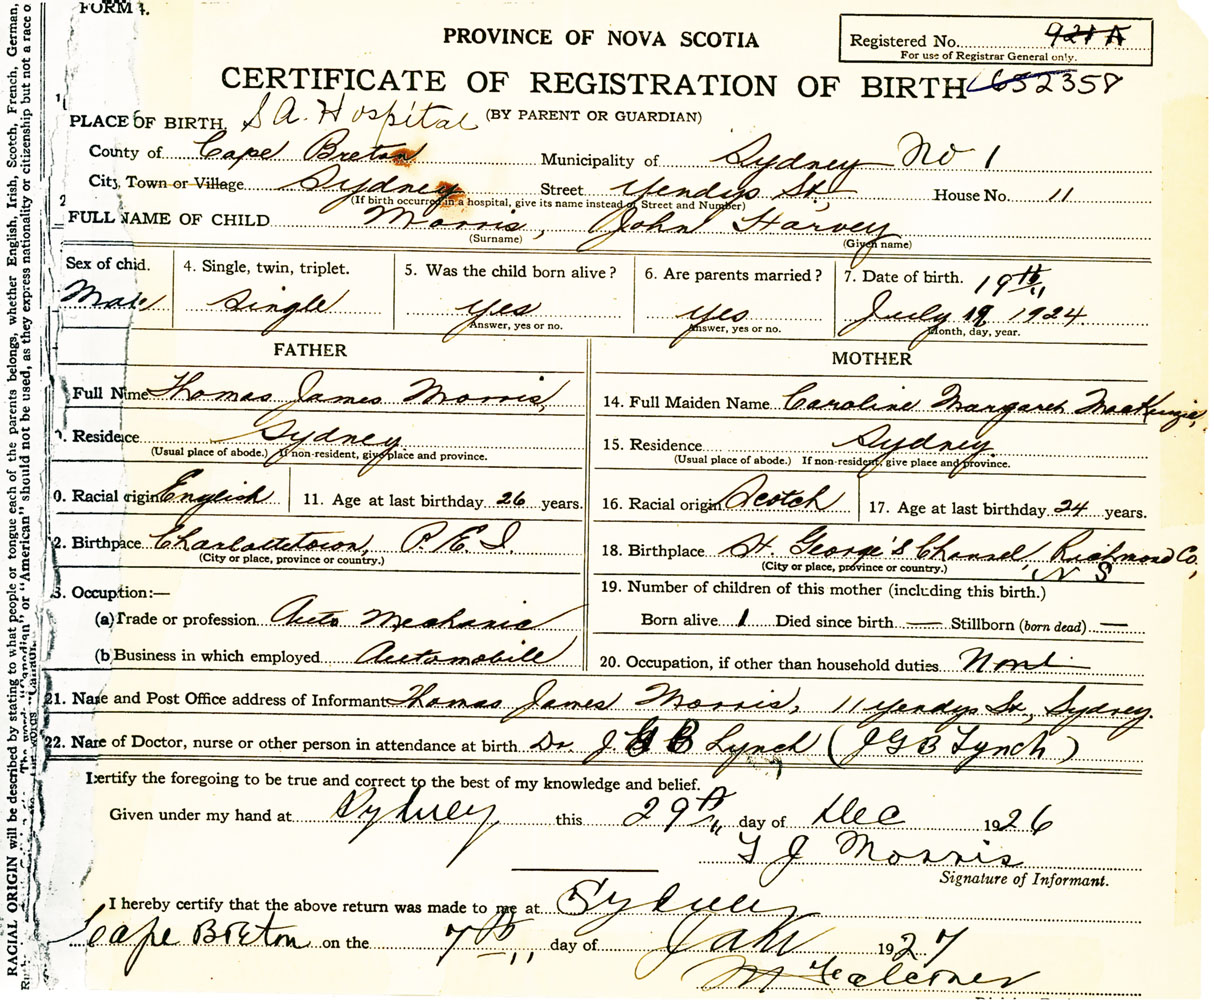 FORM 4.
PROVINCE OF NOVA SCOTIA
Registered No. 921 A
For use of Registrar General only.
CERTIFICATE OF REGISTRATION OF BIRTH 652358
PLACE OF BIRTH, S A. Hospital (BY PARENT OR GUARDIAN)
County of Cape Breton Municipality of Sydney No 1
City, Town or Village Sydney Street Yendys St. House No. 11
(If birth occurred in a hospital, give its name instead of Street and Number)
FULL NAME OF CHILD Morris, John Harvey
(Surname) (Given name)
Sex of chid. Male
4. Single, twin, triplet. Single
5. Was the child born alive? yes
Answer, yes or no.
6. Are parents married? yes
Answer, yes or no.
7. Date of birth. 19th
July 19, 1924
Month, day, year.
FATHER
Full Nime Thomas James Morris,
9. Residece Sydney
(Usual place of abode.) If non-resident, give place and province.
0. Racial origin English 11. Age at last birthday 26 years.
2. Birthpace Charlottetown, P. E. I.
(City or place, province or country.)
3. Occuption:—
(a) Trade or profession Auto Mechanic
(b) Business in which employed Automobile
MOTHER
14. Full Maiden Name Caroline Margaret MacKenzie,
15. Residence Sydney
(Usual place of abode.) If non-resident, give place and province.
16. Racial origin Scotch 17. Age at last birthday 24 years.
18. Birthplace St. George's Channel, Richmond Co., N S
(City or place, province or country.)
19. Number of children of this mother (including this birth.)
Born alive 1 Died since birth — Stillborn (born dead) —
20. Occupation, if other than household duties None
21. Nare and Post Office address of Informant Thomas James Morris, 11 Yendys St., Sydney.
22. Nare of Doctor, nurse or other person in attendance at birth Dr. J G B Lynch (J G B Lynch)
I certify the foregoing to be true and correct to the best of my knowledge and belief.
Given under my hand at Sydney this 29th day of Dec 1926
T J Morris
Signature of Informant.
I hereby certify that the above return was made to me at Sydney
Cape Breton on the 7th day of Jan 1927
RACIAL ORIGIN will be described by stating to what people or tongue each of the parents belongs, whether English, Irish, Scotch, French, German,
or "American" should not be used, as they express nationality or citizenship but not a race o